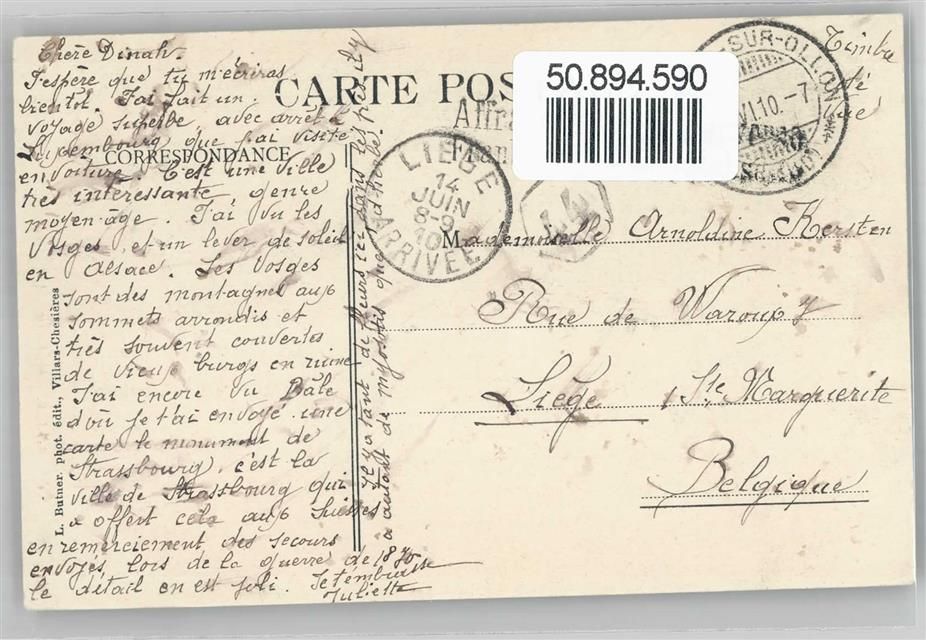 Chère Dinah.
J'espère que tu m'écriras
bientôt. J'ai fait un
voyage superbe avec arrêt à
Luxembourg que j'ai visité
en voiture. C'est une ville
très intéressante genre
moyen-âge. J'ai vu les
Vosges et un lever de soleil
en Alsace. Les Vosges
sont des montagnes aux
sommets arrondis et
très souvent couvertes
de vieux burgs en ruine
J'ai encore vu Bâle
d'où je t'ai envoyé une
carte le monument de
Strassbourg, c'est la
ville de Strassbourg qui
a offert cela aux Suisses
en remerciement des secours
envoyés lors de la guerre de 1870
le détail en est joli. Je t'embrasse
Juliette
Il y a tant de fleurs ici dans les
a autant de myosotis que
CARTE POS
CORRESPONDANCE
Affra
LIEGE
14
JUIN
8-9
10
ARRIVEE
-SUR-OLLON
VI.10.-7
50.894.590
Timbre
Mademoiselle Arnoldine Kersten
Rue de Waroux 7
Liège Ste Marguerite
Belgique
L. Butner, phot. édit., Villars-Chesières